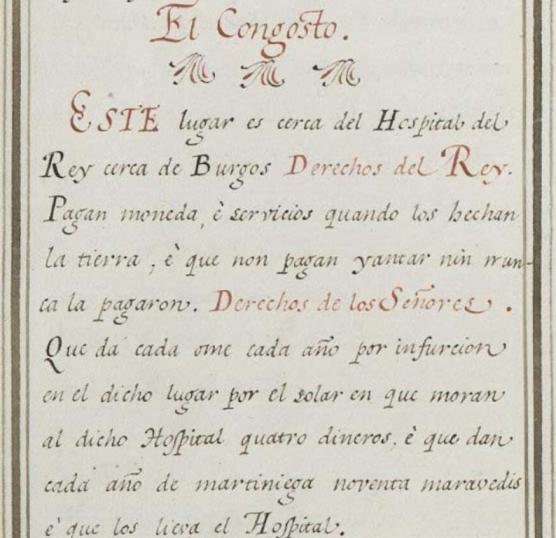 El Congosto.
ESTE lugar es cerca del Hospital del
Rey cerca de Burgos Derechos del Rey.
Pagan moneda, è servicios quando los hechan
la tierra, è que non pagan yantar nin nun-
ca la pagaron. Derechos de los Señores.
Que dá cada ome cada año por infurcion
en el dicho lugar por el solar en que moran
al dicho Hospital quatro dineros, è que dan
cada año de martiniega noventa maravedis
è que los lieva el Hospital.